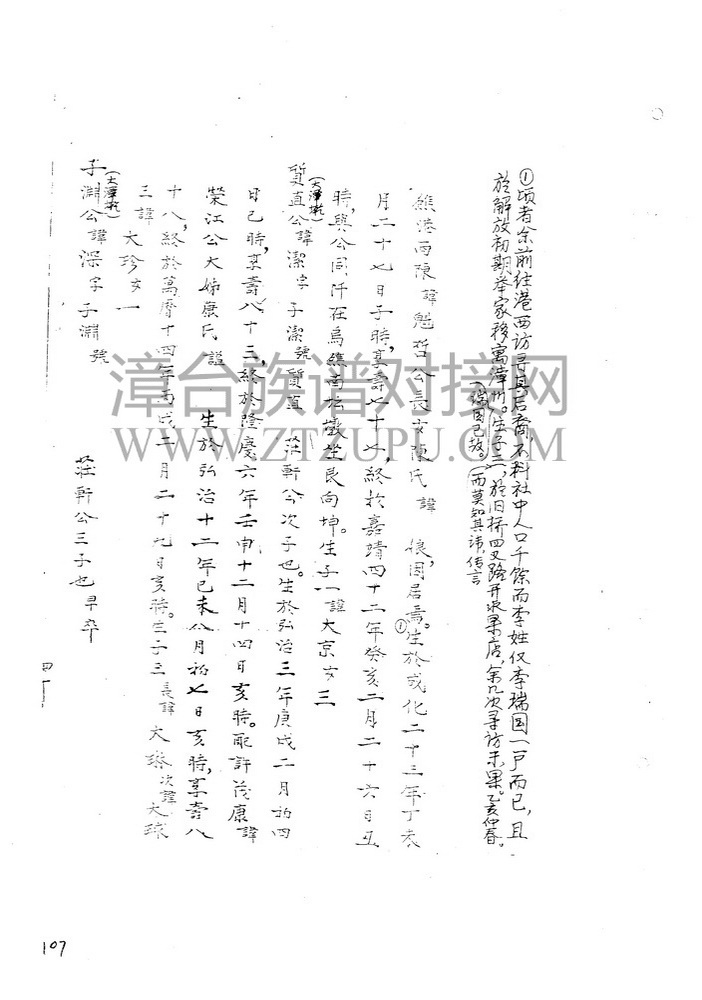 ①頃者余前往港西訪尋其后裔，不料社中人口千餘而李姓仅李瑞国一户而已，且
於解放初期举家移寓漳州。生子二，於旧桥四叉路开水果店，余几次寻访未果。乙亥仲春。
（瑞国已故。）（而莫知其讳，传言
鄉港西陳諱魁哲公長女陳氏諱　娘，因居焉。①生於成化二十三年丁未
月二十七日子時，享壽七十七，終於嘉靖四十二年癸亥二月二十六日丑
時，與公同阡在烏礁南松墩坐艮向坤。生子一諱大京女三
（大潭坑）
質直公諱潔字子潔號質直　莊軒公次子也。生於弘治三年庚戌二月初四
日巳時，享壽八十三，終於隆慶六年壬申十二月十四日亥時。配許茂康諱
榮江公大姊康氏諡　生於弘治十二年己未八月初七日亥時，享壽八
十八，終於萬曆十四年丙戌二月二十九日亥時。生子三長諱大琳次諱大球
三諱大珍女一
（大潭坑）
子淵公諱深字子淵號　莊軒公三子也早卒
四一
107
漳台族谱对接网
WWW.ZTZUPU.COM